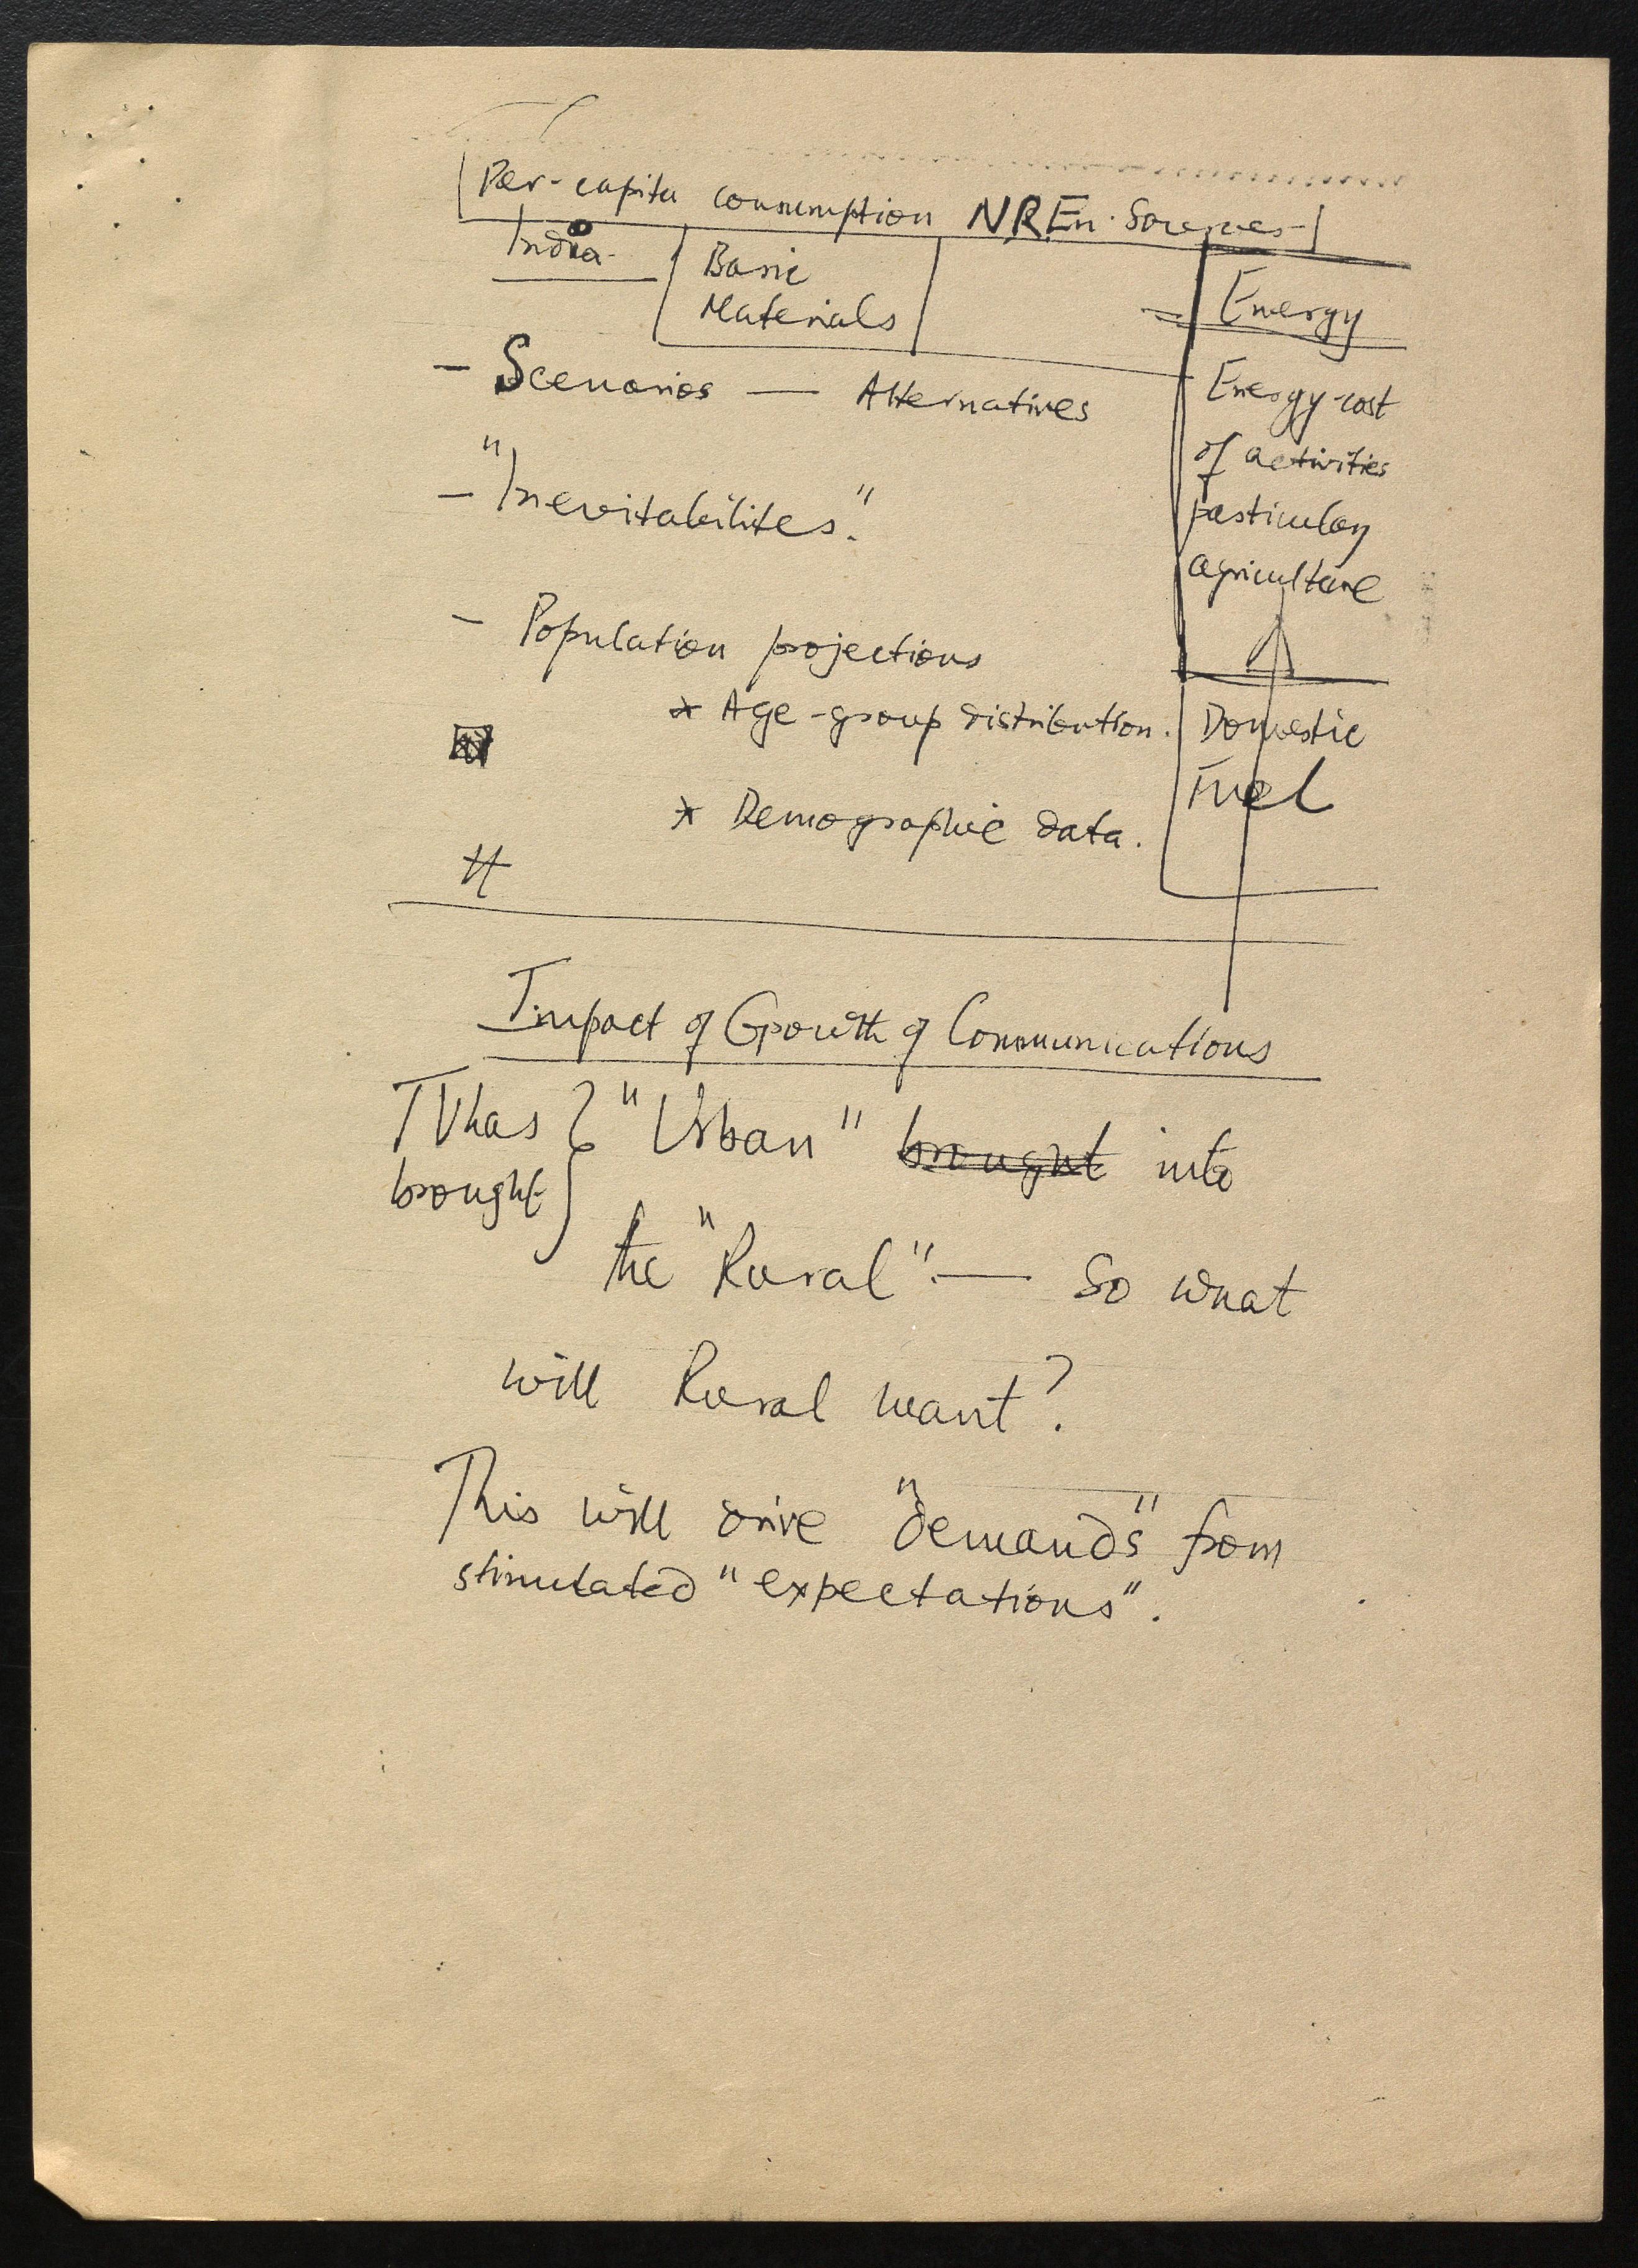 Per-capita consumption NREn. Sources
India
Basic
Materials
Energy
- Scenarios — Alternatives
Energy-cost
of activities
particulary
agriculture
- "Inevitabilites."
- Population projections
* Age-group distribution.
Domestic
Fuel
* Demographic data.
#
Impact of Growth of Communications
TV has } "Urban" brought into
brought
the "Rural" — So what
will Rural want?
This will drive "demands" from
stimulated "expectations".